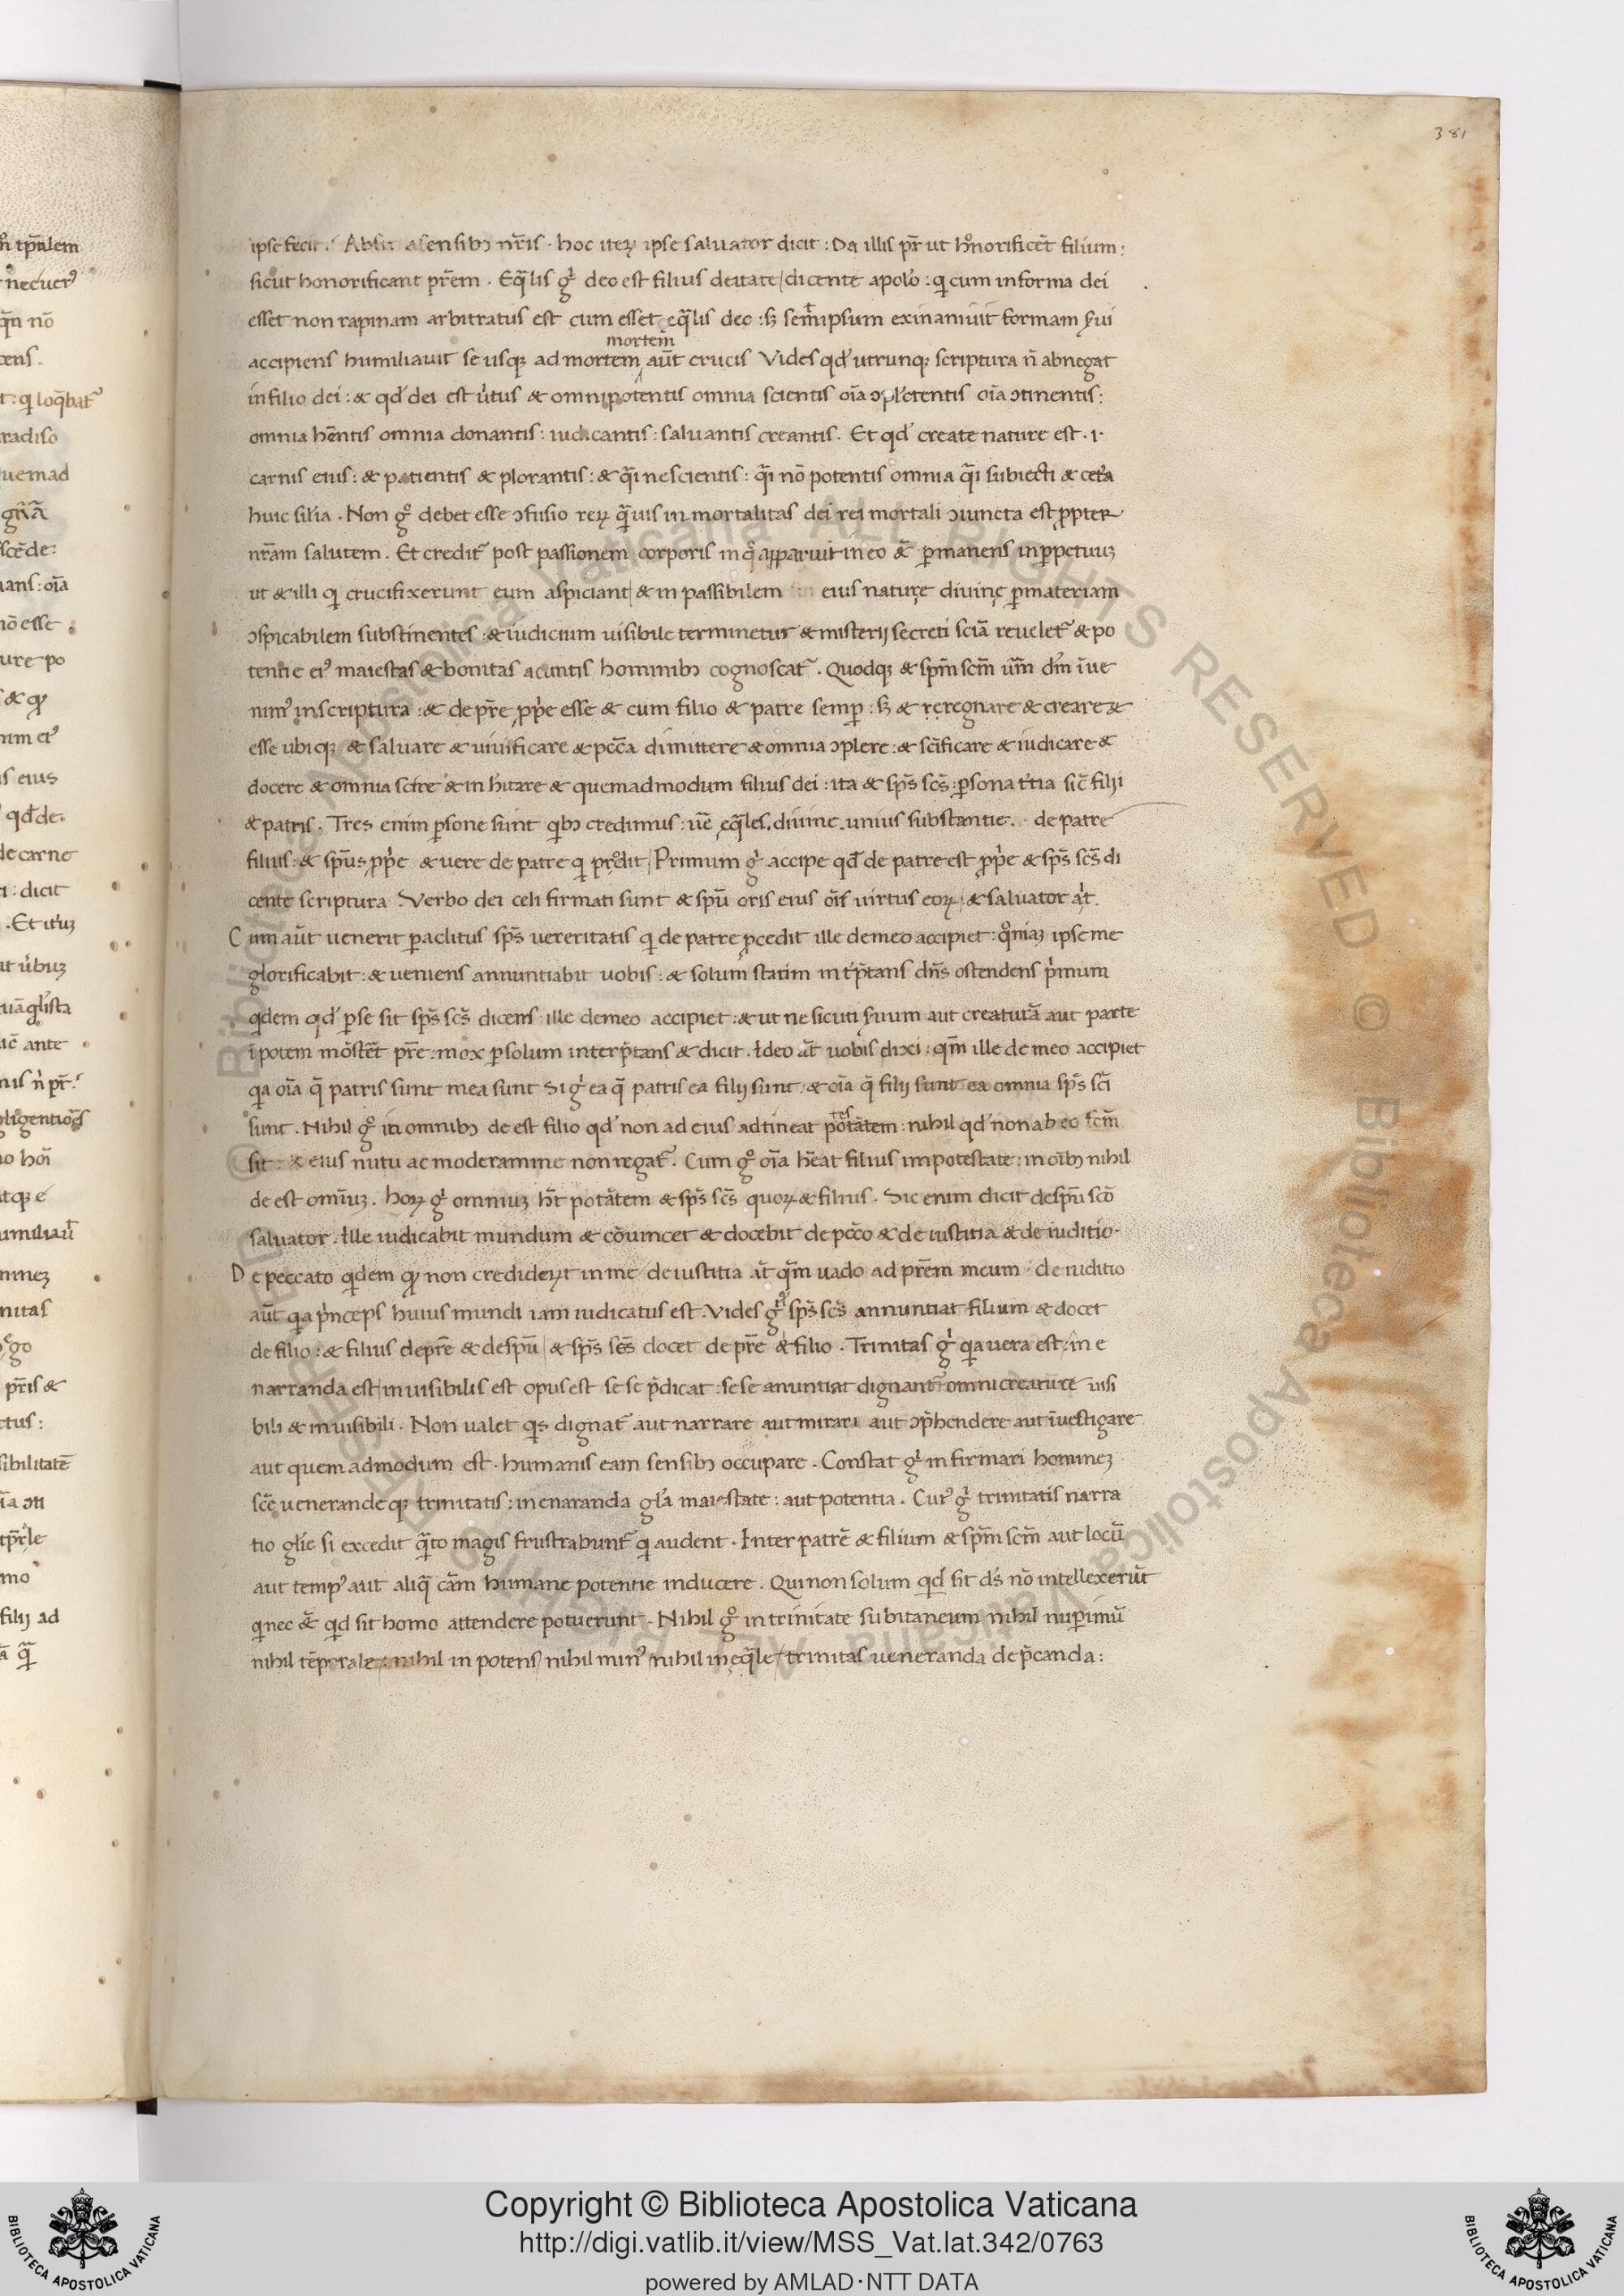 381
ipse fecit. Absit a sensibꝫ nr̄is. hoc iteꝝ ipse saluator dicit: Da illis pr̄ ut honorificēt filium:
sicut honorificant pr̄em. Eq̄lis gͥ deo est filius deitate/ dicente apolo: qi cum in forma dei
esset non rapinam arbitratus est cum esset eq̄lis deo: sꝫ semipsum exinaniuit formam sui
mortem
accipiens humiliauit se usqꝫ ad mortem aūt crucis Vides qd' utrunqꝫ scriptura n̄ abnegat
in filio dei: & qd' dei est u'tus & omnipotentis omnia scientis oīa ↄplectentis oīa ↄtinentis:
omnia hēntis omnia donantis: iudicantis: saluantis creantis. Et qd' create nature est .i.
carnis eius: & patientis & plorantis: & qͣi nescientis: qͣi nō potentis omnia qͣi subiecti & cet'a
huic silīa. Non gͦ debet esse ↄfusio reꝝ qͣuis inmortalitas dei rei mortali ↄiuncta est ꝓpter
nr̄am salutem. Et credit̄ post passionem corporis in qͦ apparuit in eo &̄ ꝑmanens in ꝑpetuuꝫ
ut & illi qi crucifixerunt eum aspiciant/ & in passibilem eius naturę diuinę ꝑ materiam
ↄspicabilem substinentes: & iudicium uisibile terminetur & misterij secreti scīā reuelet̄ & po
tentie eiꝰ maiestas & bonitas acuntis hominibꝫ cognoscat̄. Quodqꝫ & spm̄ scm̄ um̄ dm̄ īue
nimꝰ in scriptura: & de pr̄e ꝓpͥe esse & cum filio & patre semꝑ: sꝫ & reregnare & creare &
esse ubiqꝫ & saluare & uiuificare & pcc̄a dimittere & omnia ↄplere: & scīficare & iudicare &
docere & omnia scire & inhītare & quemadmodum filius dei: ita & sps̄ scs̄: ꝑsona t'tia sic̄ filij
& patris. Tres enim ꝑsone sunt qibꝫ credimus: uē eq̄les. diuine. unius substantie. de patre
filius: & spūs ꝓpͥe & uere de patre qi procedit/ Primum gͥ accipe qd̄ de patre est ꝓpͥe & sps̄ scs̄ di
cente scriptura. Verbo dei celi firmati sunt & spū oris eius oīs uirtus eoꝝ: & saluator aͥt.
Cum aūt uenerit paraclitus sps̄ uereritatis qi de patre ꝓcedit ille de meo accipiet: qͦniaꝫ ipse me
glorificabit: & ueniens annuntiabit uobis: & solum statim int'p̄tans dn̄s ostendens pͥmum
qidem qd' ꝑ se sit sps̄ scs̄ dicens: ille de meo accipiet: & ut ne sicuti suum aut creaturā aut parte
īpotem mōstrēt pr̄e: mox ꝑsolum interp̄tans & dicit. Ideo aūt uobis dixi: qm̄ ille de meo accipiet
qa oīa q̄ patris sunt mea sunt Si gͥ ea q̄ patris ea filij sunt: & oīa q̄ filij sunt ea omnia sps̄ scī
sunt. Nihil gͦ in omnibꝫ de est filio qd' non ad eius adtineat potātem: nihil qd' non ab eo scm̄
sit: & eius nutu ac moderamine non regat̄. Cum gͦ oīa hēat filius impotestate: in oībꝫ nihil
de est omīuꝫ. hoꝝ gͥ omniuꝫ ht̄ potātem & sps̄ scs̄ quoꝝ & filius. Sic enim dicit de spū scō
saluator. Ille iudicabit mundum & cōuincet & docebit de pcc̄o & de iustitia & de iuditio.
De peccato qidem qꝛ non credideꝛt in me/ de iustitia aūt qm̄ uado ad pr̄em meum: de iuditio
aūt qa pͥnceps huius mundi iam iudicatus est. Vides gͥ sps̄ scs̄ annuntiat filium & docet
de filio: & filius de pr̄e & de spū/ & sps̄ scs̄ docet de pr̄e & filio. Trinitas gͥ qa uera est: in e
narranda est/ inuisibilis est opus est sese p̄dicat: sese anuntiat dignant̄ omni creature uisi
bili & inuisibili. Non ualet qis dignat̄ aut narrare aut mirari aut ↄp̄hendere aut īuestigare
aut quemadmodum est. humanis eam sensibꝫ occupare. Constat gͥ infirmari homineꝫ
scē uenerandeqꝫ trinitatis: inenaranda gl'a maiestate: aut potentia. Cuiꝰ gͥ trinitatis narra
tio glīe si excedit qͣto magis frustrabunt̄ qi audent. Inter patrē & filium & spm̄ scm̄ aut locū
aut tempꝰ aut aliq̄ cām humane potentie inducere. Qui non solum qid sit ds̄ nō intellexerūt
qi nec &̄ qid sit homo attendere potuerunt. Nihil gͦ in trinitate subitaneum nihil nuꝑimū
nihil tēporale: nihil in potens/ nihil minꝰ/ nihil ineq̄le/ trinitas ueneranda dep̄canda:
Copyright © Biblioteca Apostolica Vaticana
http://digi.vatlib.it/view/MSS_Vat.lat.342/0763
powered by AMLAD·NTT DATA
BIBLIOTECA APOSTOLICA VATICANA
BIBLIOTECA APOSTOLICA VATICANA